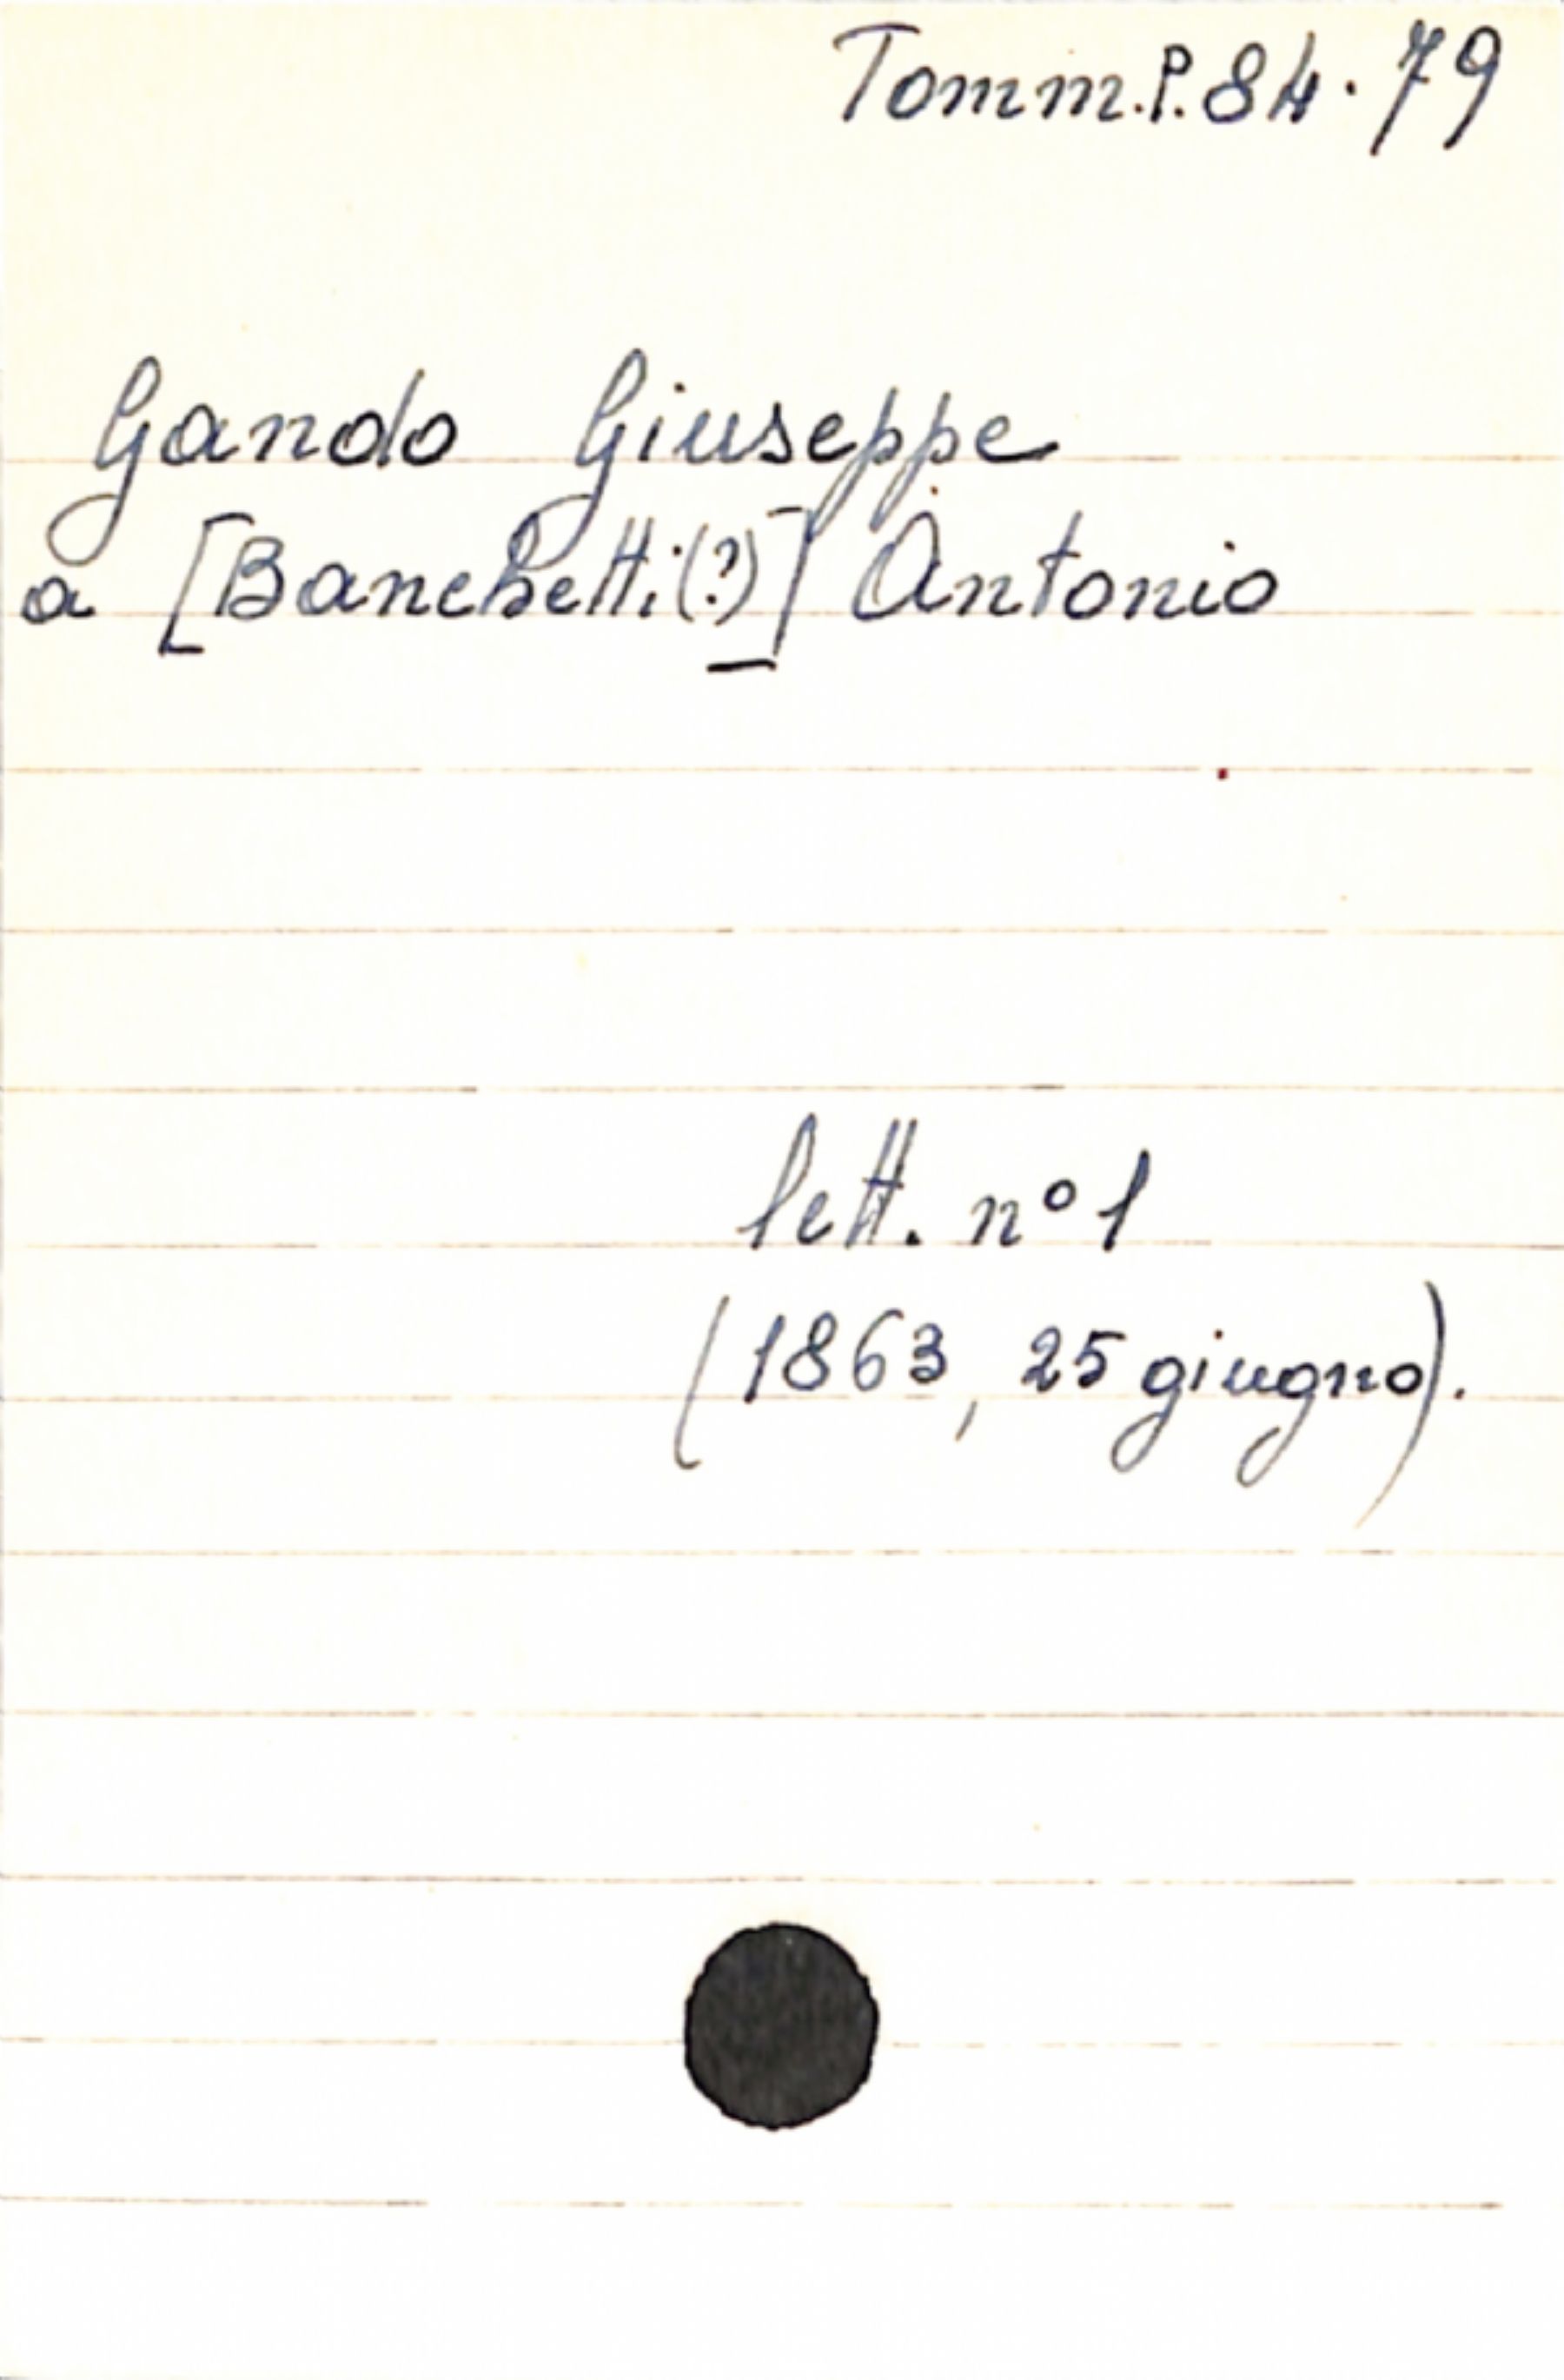 Tomm.P.84.79
Gando Giuseppe
a [Banchetti(?)] Antonio
lett. n° 1
(1863, 25 giugno).